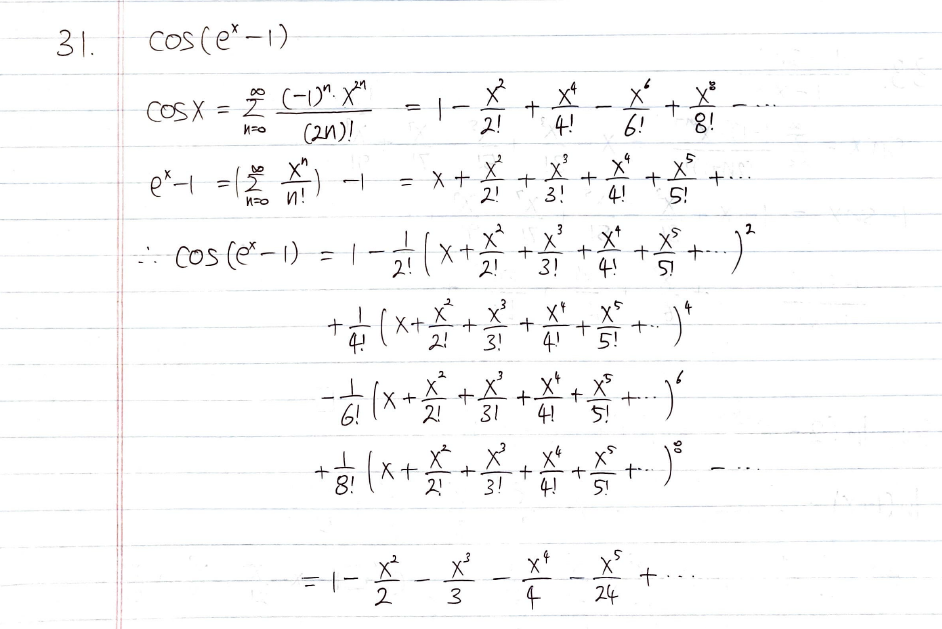 31. cos(e^x − 1)
cos x = ∑_{n=0}^{∞} (−1)^n · x^{2n} / (2n)! = 1 − x^2/2! + x^4/4! − x^6/6! + x^8/8! − ⋯
e^x − 1 = (∑_{n=0}^{∞} x^n/n!) − 1 = x + x^2/2! + x^3/3! + x^4/4! + x^5/5! + ⋯
∴ cos(e^x − 1) = 1 − 1/2! (x + x^2/2! + x^3/3! + x^4/4! + x^5/5! + ⋯)^2
+ 1/4! (x + x^2/2! + x^3/3! + x^4/4! + x^5/5! + ⋯)^4
− 1/6! (x + x^2/2! + x^3/3! + x^4/4! + x^5/5! + ⋯)^6
+ 1/8! (x + x^2/2! + x^3/3! + x^4/4! + x^5/5! + ⋯)^8 − ⋯
= 1 − x^2/2 − x^3/3 − x^4/4 − x^5/24 + ⋯